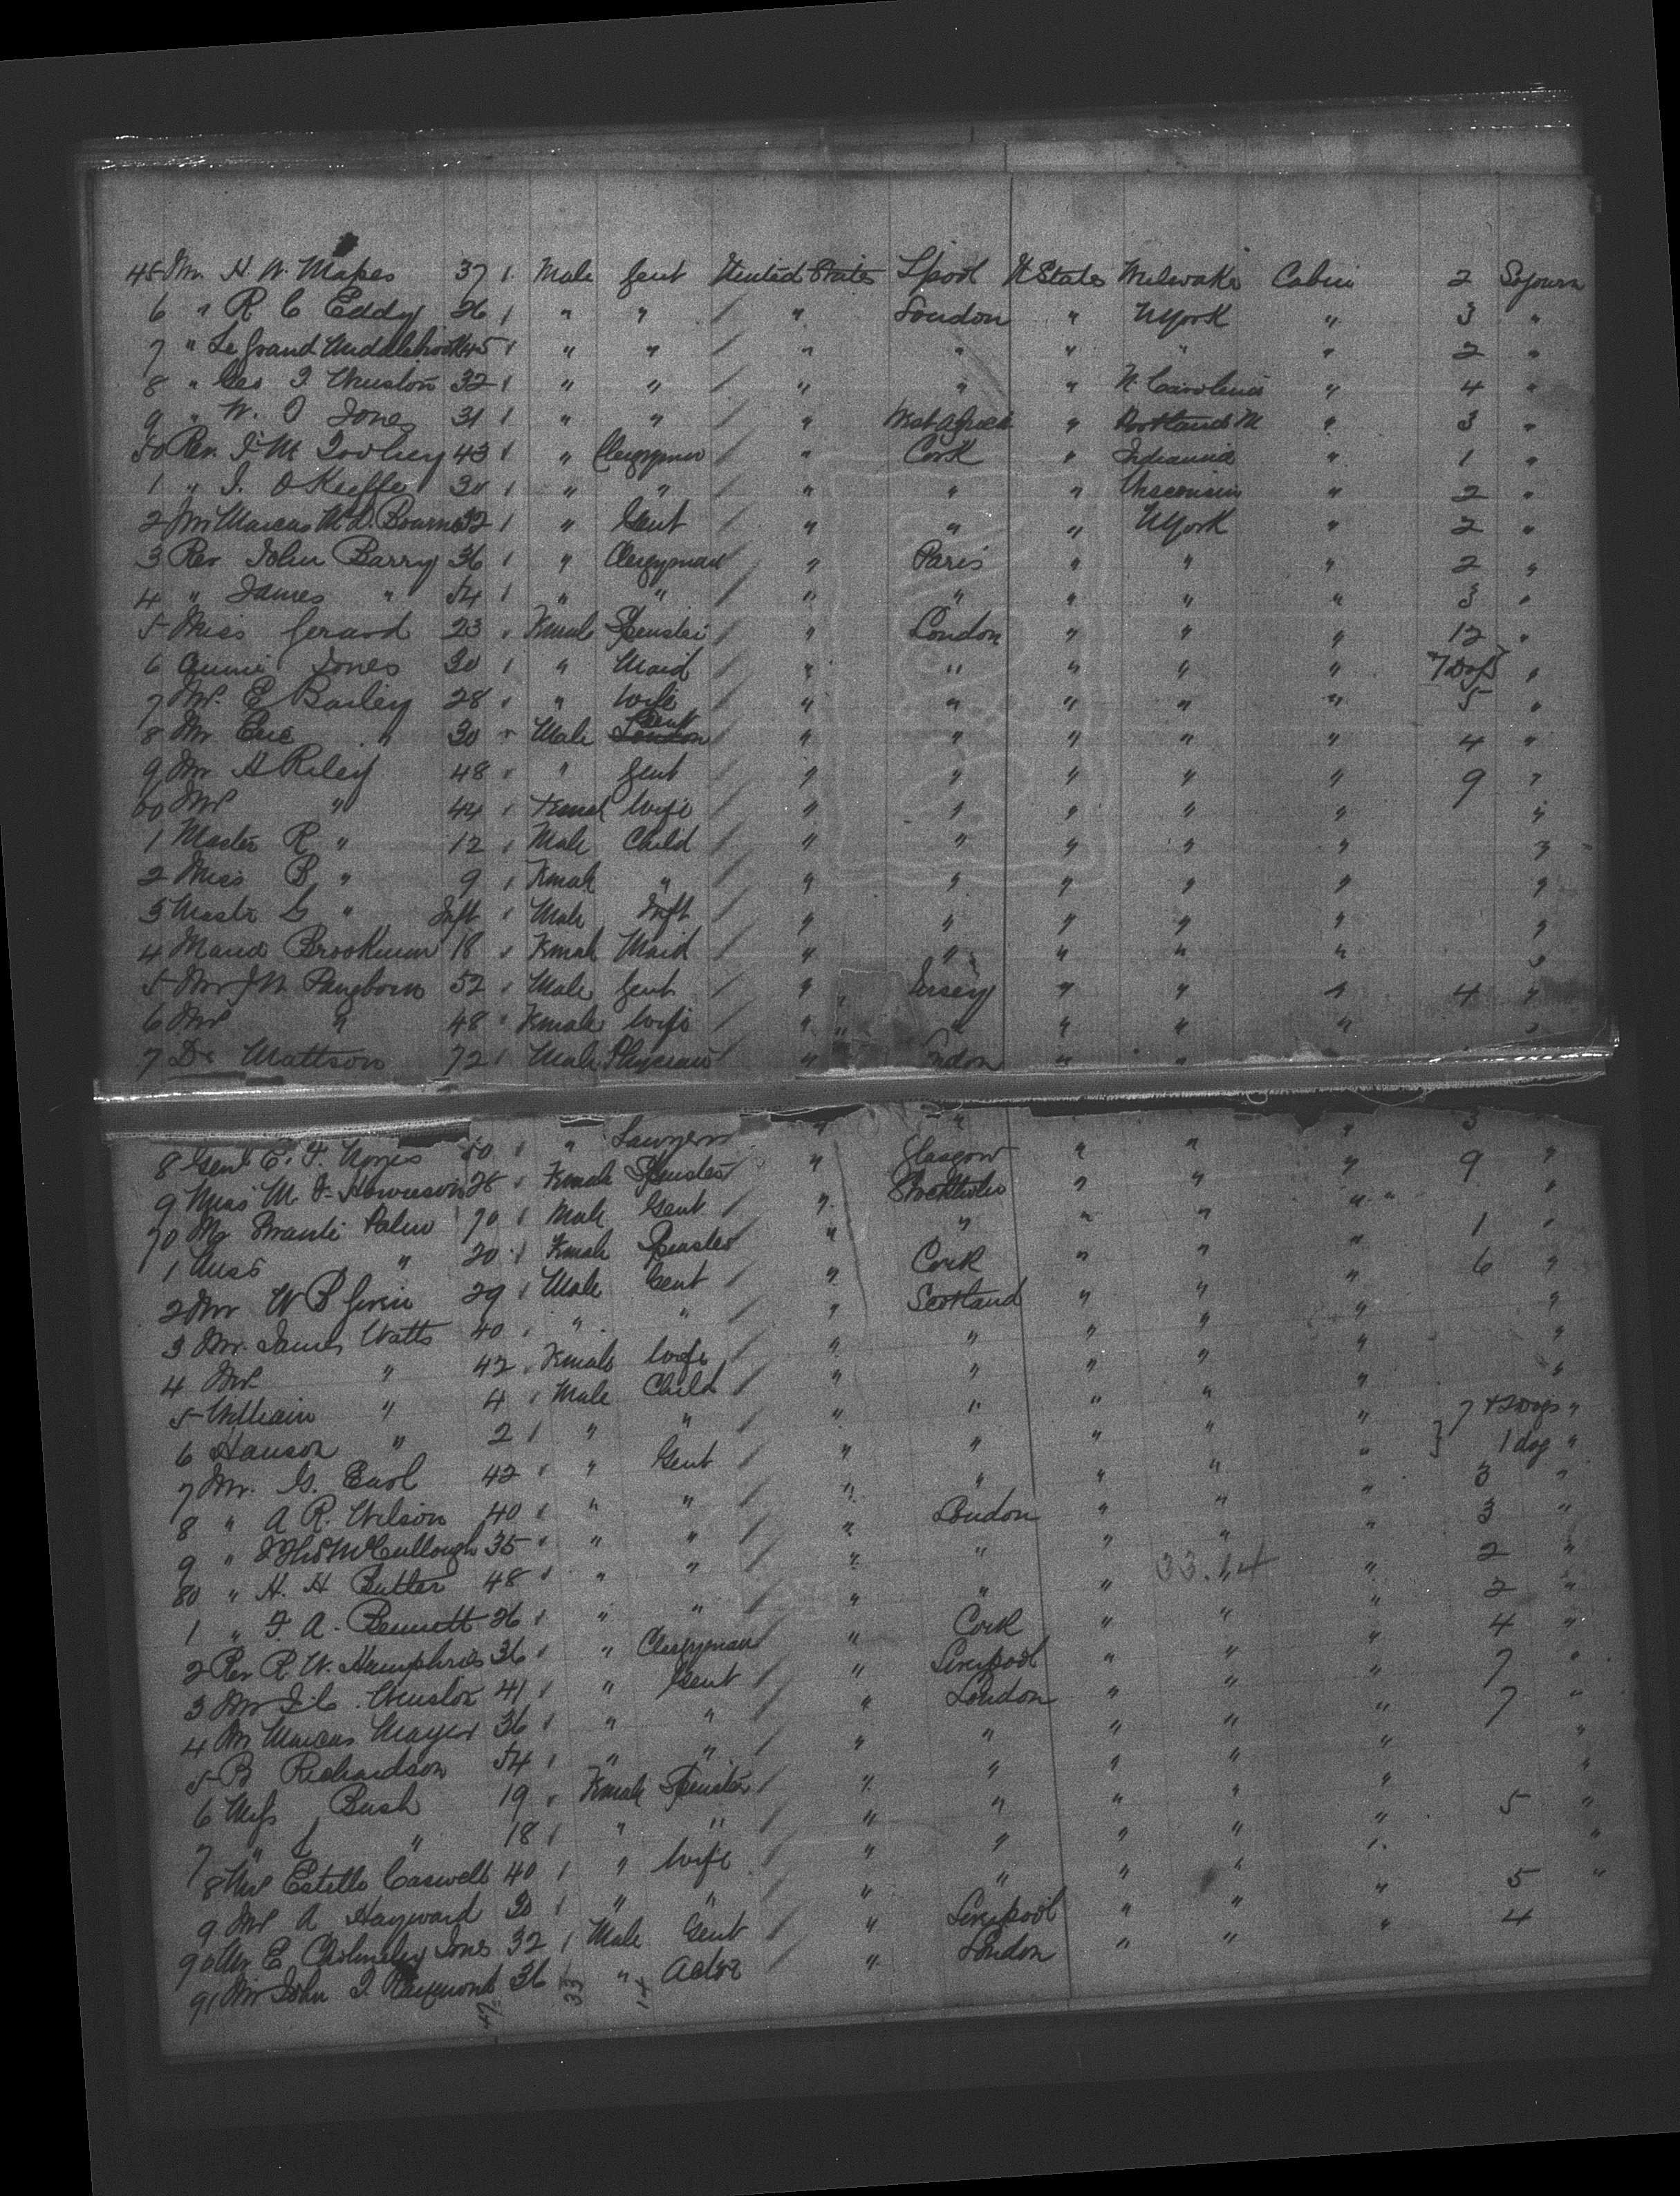 45 Mr. H. W. Mapes 37 1 Male Gent United States Lpool U States Milwake Cabin 2 Sojourn
6 " R C Eddy 26 1 " " / " London " NYork " 3 "
7 " Le Grand Middlebrook 45 1 " " / " " " " " 2 "
8 " Geo T. Winston 32 1 " " / " " " N. Carolina " 4 "
9 " W. O Jones 31 1 " " / " West Africa " Portland M " 3 "
50 Rev. J. M Toohey 43 1 " Clergyman / " Cork " Indianna " 1 "
1 " J. O Keeffe 30 1 " " / " " " Wisconsin " 2 "
2 Mr Marcus M. D. Bourne 52 1 " Gent / " " " NYork " 2 "
3 Rev John Barry 36 1 " Clergyman / " Paris " " " 2 "
4 " James " 54 1 " " / " " " " " 3 "
5 Miss Gerard 23 1 Female Spinster / " London " " " 12 "
6 Annie Jones 30 1 " Maid / " " " " " "
7 Mrs. E Bailey 28 1 " Wife / " " " " " 5 "
8 Mr Eric " 30 1 Male Gent / " " " " " 4 "
9 Mr A Riley 48 1 " Gent / " " " " " 9 "
60 Mrs " 44 1 Femal Wife / " " " " " "
1 Master R " 12 1 Male Child / " " " " " "
2 Miss B " 9 1 Female " / " " " " " "
3 Mastr G " Inft 1 Male Inft / " " " " " "
4 Maud Brookman 18 1 Female Maid / " " " " " "
5 Mr J W Pangborn 52 1 Male Gent / " Jersey " " " 4 "
6 Mrs " 48 1 Female Wife / " " " " " "
7 Dr Mattson 72 1 Male Physician / " London " "
8 Genl E. F. Noyes 50 1 " Lawyer / " " " " " 3
9 Miss M. F. Howieson 28 1 Female Spinster / " Glasgow " " " 9 "
70 Mr Swante Palm 70 1 Male Gent / " Stockholm " " " "
1 Miss " 20 1 Female Spinster / " " " " " 1 "
2 Mr W B Given 29 1 Male Gent / " Cork " " " 6 "
3 Mr. James Watts 40 1 " " / " Scotland " " " "
4 Mrs " 42 1 Female Wife / " " " " " "
5 William " 4 1 Male Child / " " " " " "
6 Hanson " 2 1 " " / " " " " " 7 + 2 Dogs "
7 Mr. G. Earl 42 1 " Gent / " " " " " 1 dog "
8 " A R. Wilson 40 1 " " / " " " " " 3 "
9 " McCullough 35 1 " " / " London " " " 3 "
80 " H. H Butler 48 1 " " / " " " " " 2 "
1 " F. A. Bennett 26 1 " " / " " " " " 2 "
2 Rev R. W. Humphris 36 1 " Clergyman / " Cork " " " 4 "
3 Mr J. C. Winston 41 1 " Gent / " Liverpool " " " 7 "
4 Mr Marcus Mayer 36 1 " " / " London " " " 7 "
5 B Richardson 54 1 " " / " " " " " "
6 Miss Bush 19 1 Female Spinster / " " " " " "
7 " " 18 1 " " / " " " " " 5 "
8 Mrs Estelle Caswell 40 1 " Wife / " " " " " "
9 Mrs A Hayward 30 1 " " / " " " " " 5 "
90 Mr E Cholmeley Jones 32 1 Male Gent / " Liverpool " " " 4
91 Mr John T. Raymond 36 " Actor / " London " "
33.14
47 33 14